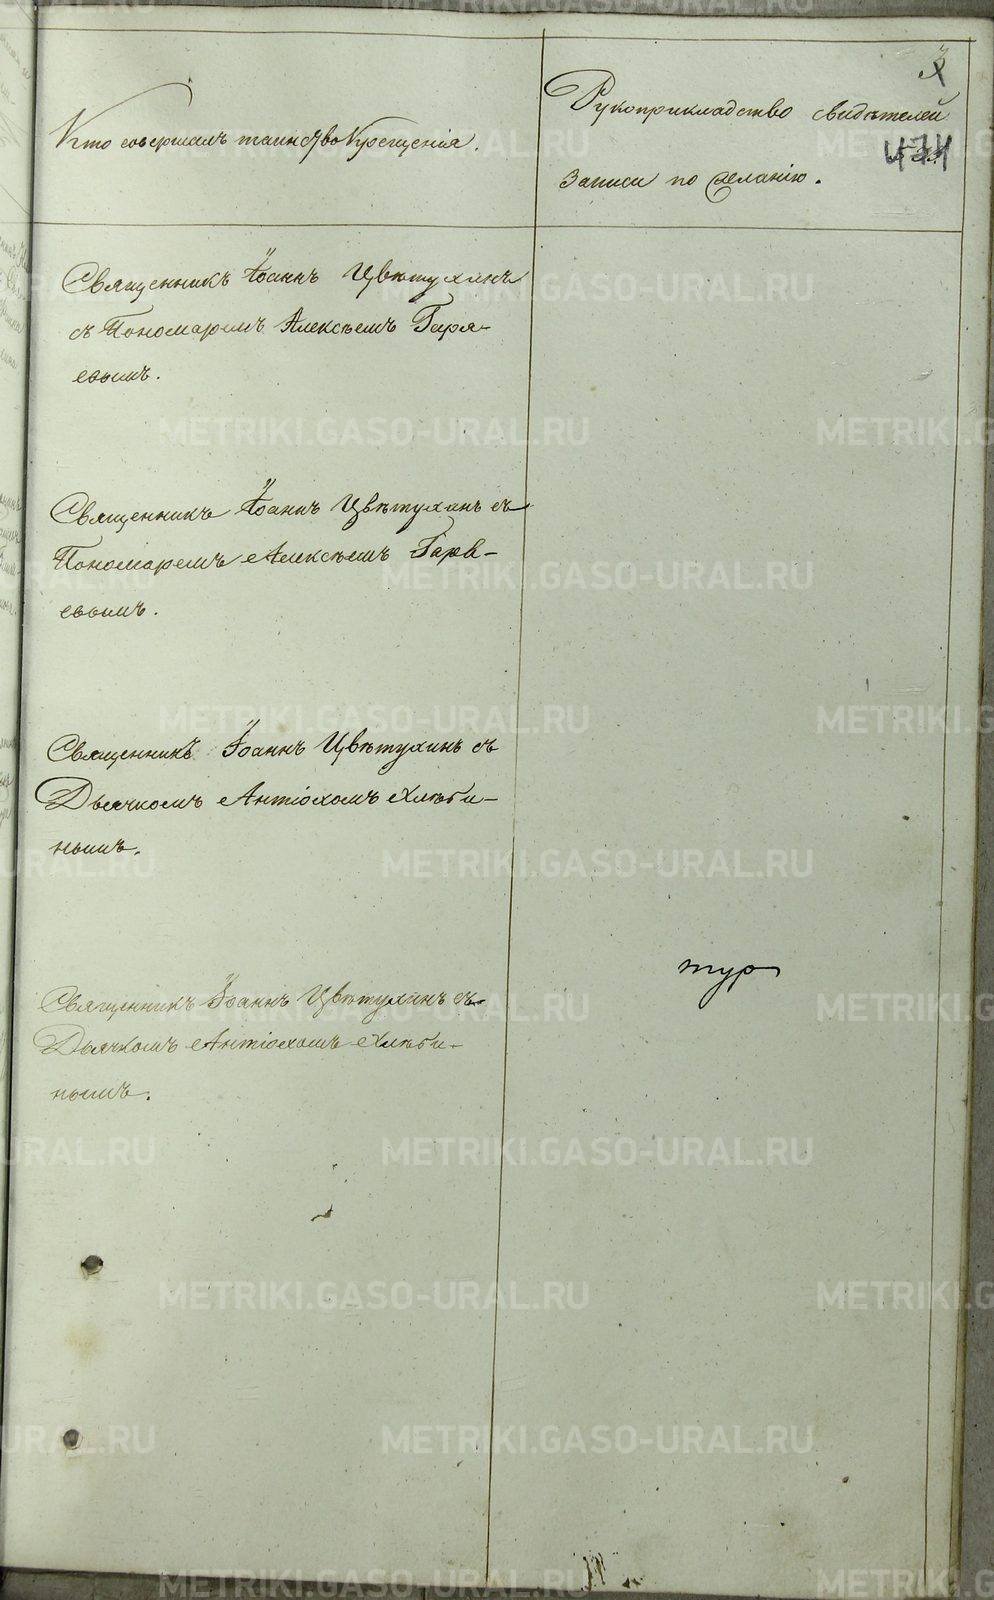 Кто совершалъ таинство Крещенія.
Рукоприкладство свидѣтелей
записи по желанію.
Священникъ Іоаннъ Цвѣтухинъ
съ Пономаремъ Алексѣемъ Гаря-
евымъ.
Священникъ Іоаннъ Цвѣтухинъ съ
Пономаремъ Алексѣемъ Гаря-
евымъ.
Священникъ Іоаннъ Цвѣтухинъ съ
Дьячкомъ Антіохомъ Хлѣби-
нымъ.
тур
Священникъ Іоаннъ Цвѣтухинъ съ
Дьячкомъ Антіохомъ Хлѣби-
нымъ.
METRIKI.GASO-URAL.RU